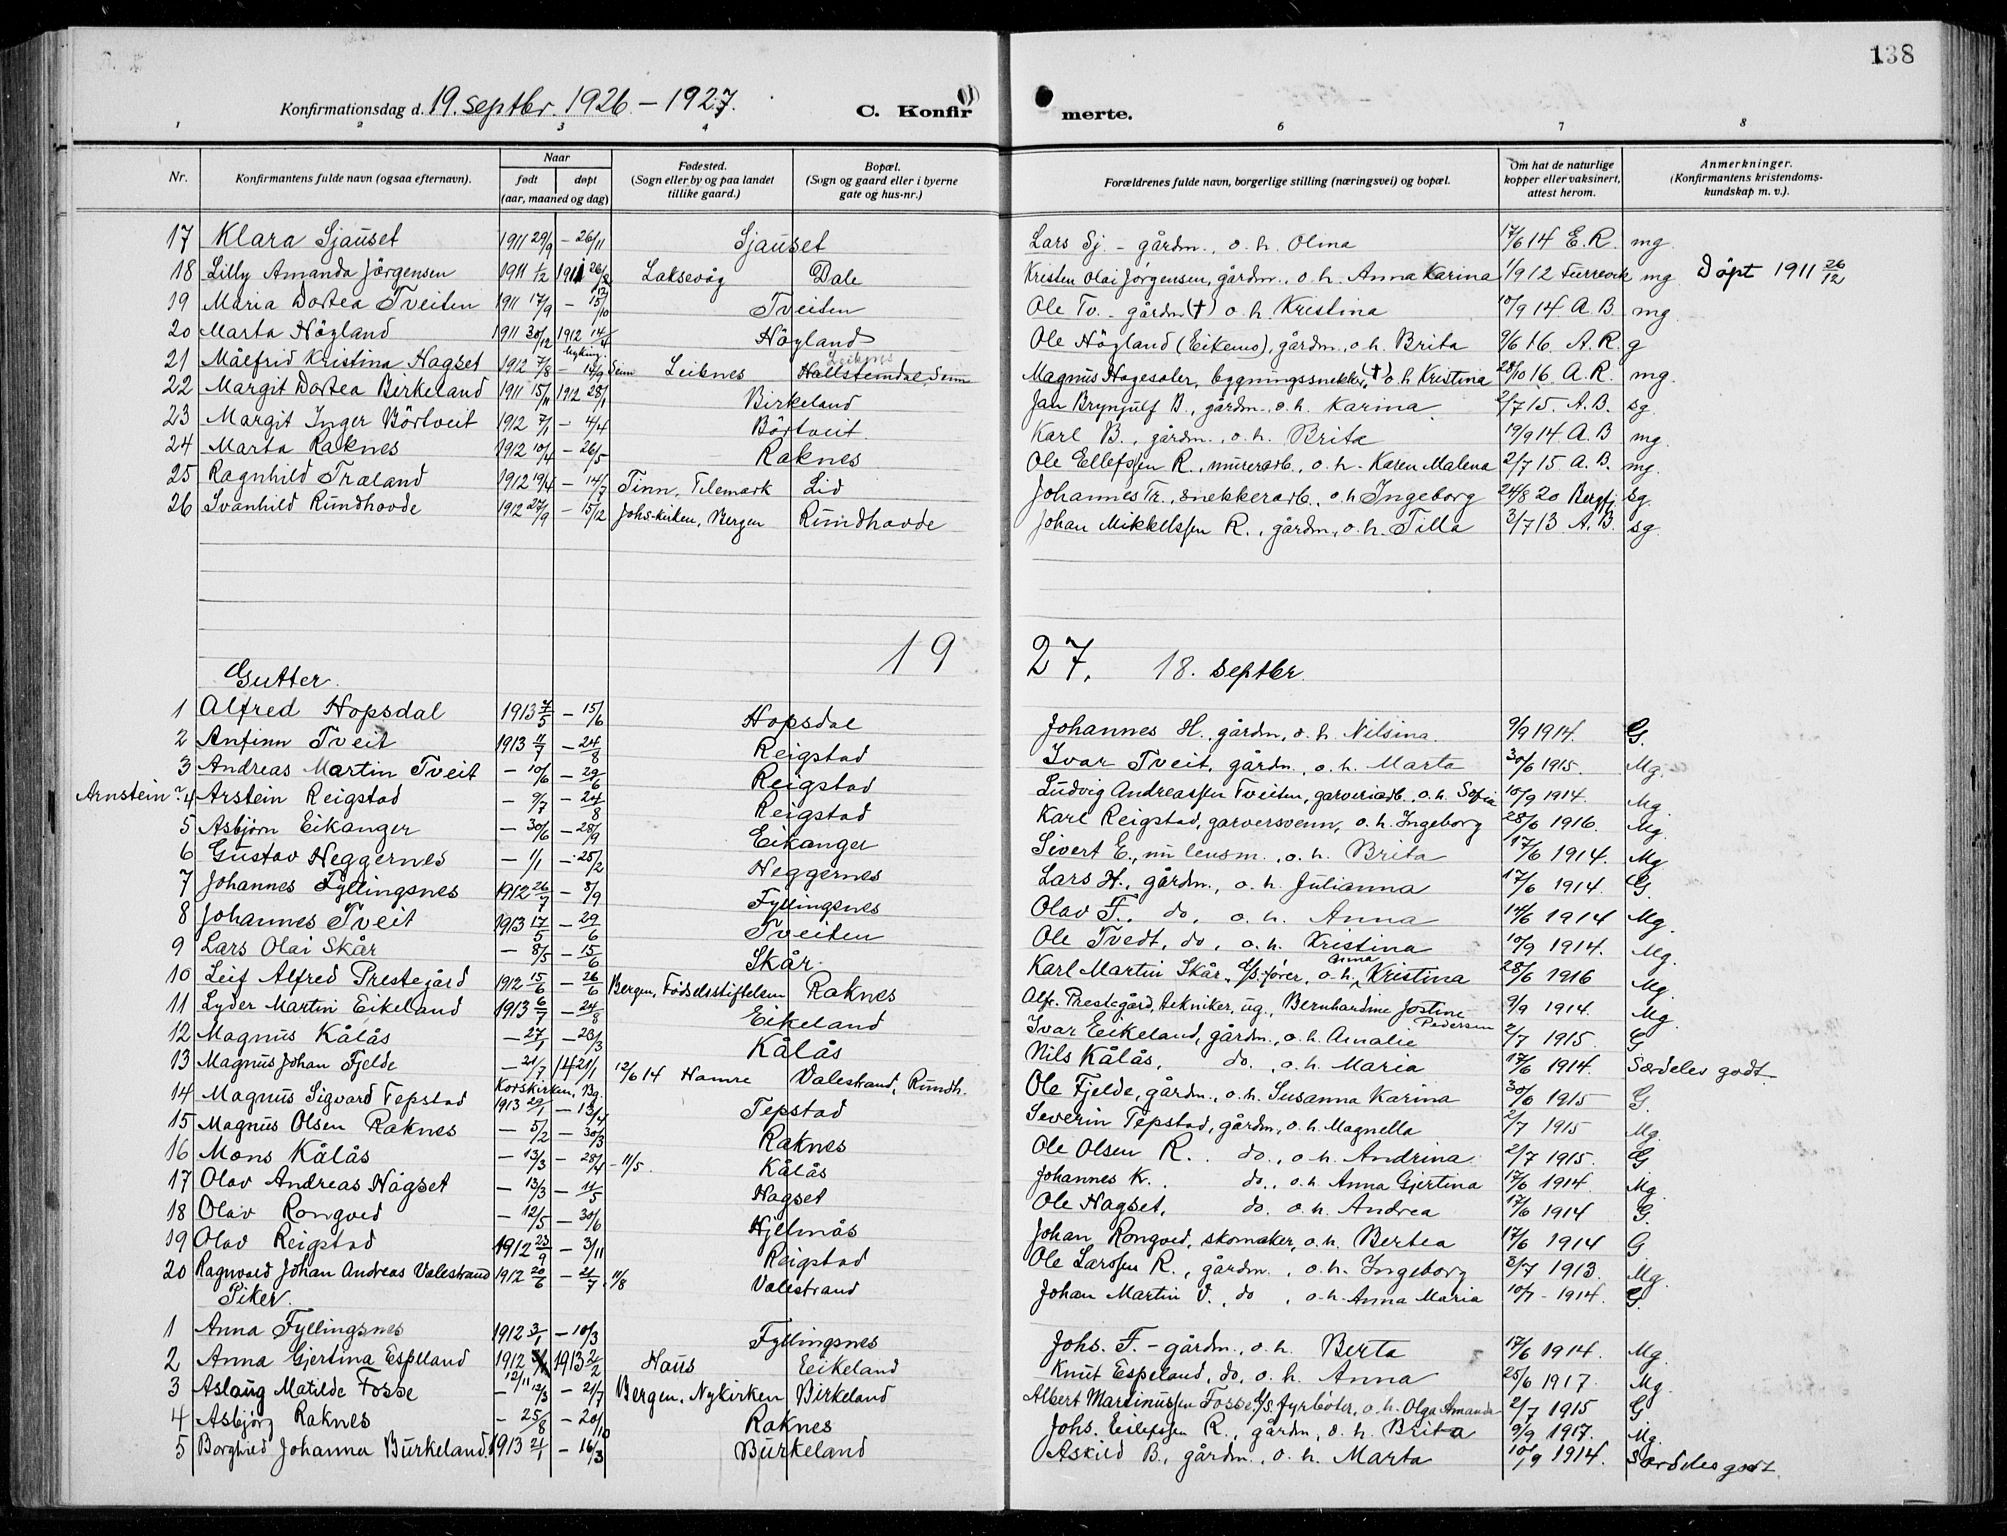 138
Konfirmationsdag d. 19. septbr. 1926 – 1927.
C. Konfirmerte.
1 2 3 4 6 7 8
Nr. | Konfirmantens fulde navn (ogsaa efternavn). | Naar født døpt (aar, maaned og dag) | Fødested. (Sogn eller by og paa landet tillike gaard.) | Bopæl. (Sogn og gaard eller i byerne gate og hus-nr.) | Forældrenes fulde navn, borgerlige stilling (næringsvei) og bopæl. | Om hat de naturlige kopper eller vaksinert, attest herom. | Anmerkninger. (Konfirmantens kristendoms-kundskap m. v.).
17 Klara Sjauset 1911 29/9 – 26/11 Sjauset Lars Sj. – gårdm., o. h. Olina 17/6 14 E. R. mg.
18 Lilly Amanda Jörgensen 1911 1/12 1911 26/12 Laksevåg Dale Kristen Olai Jörgensen, gårdm., o. h. Anna Karina 1/9 12 mg Döpt 1911 26/12
19 Maria Dortea Tveiten 1911 17/9 – 15/10 Tveiten Ole Tv. – gårdm (†) o. h. Kristina 10/9 14 A. B mg.
20 Marta Högland 1911 30/12 1912 14/4 Högland Ole Högland (Eikemo), gårdm., o. h. Brita 9/6 16. A. R. g
21 Målfrid Kristina Hagset 1912 7/8 – 15/9 Seim Leiknes Hallstemdal Seim Leiknes Magnus Hagesæter, bygningssnekker, (†) o. h. Kristina 28/10 16. A. R. mg.
22 Margit Dortea Birkeland 1911 15/11 1912 28/1 Birkeland Jan Brynjulf B., gårdm., o. h. Karina 2/7 15. A. B. sg.
23 Margit Inger Börtveit 1912 7/1 – 4/4 Börtveit Karl B., gårdm., o. h. Brita 19/9 14 A. B mg.
24 Marta Raknes 1912 10/4 – 26/5 Raknes Ole Ellefssen R., murerarb., o. h. Karen Malena 2/7 15 A. B. mg.
25 Ragnhild Træland 1912 19/4 – 14/7 Tinn, Telemark Lid Johannes Tr., snekkerarb., o. h. Ingeborg 24/8 20 sg.
26 Svanhild Rundhovde 1912 27/9 – 15/12 Johs-kirken, Bergen Rundhovde Johan Mikkelssen R., gårdm., o. h. Tilla 3/7 13 A. B. sg.
19 27. 18. septbr.
Gutter.
1 Alfred Hopsdal 1913 7/5 – 15/6 Hopsdal Johannes H. gårdm, o. h. Nilsina. 9/9 1914. G.
2 Anfinn Tveit 1913 11/7 – 24/8 Reigstad Ivar Tveit, gårdm., o. h. Marta 30/6 1915. Mg.
3 Andreas Martin Tveit – 10/6 – 29/6 Reigstad Ludvig Andreassen Tveiten, garveriarb., o. h. Sofie 10/9 1914. Mg
Arnstein? 4 Arstein Reigstad – 9/7 – 24/8 Reigstad Karl Reigstad, garversvenn, o. h. Ingeborg 28/6 1916. Mg.
5 Asbjørn Eikanger – 30/6 – 28/9 Eikanger Sivert E., nu lensm., o. h. Brita 17/6 1914. Mg
6 Gustav Heggernes – 1/1 – 25/2 Heggernes Lars H., gårdm., o. h. Julianna 17/6 1914. G.
7 Johannes Fyllingsnes 1912 26/7 – 8/9 Fyllingsnes Olav F., do, o. h. Anna 14/6 1914 Mg.
8 Johannes Tveit 1913 17/5 – 29/6 Tveiten Ole Tvedt, do, o. h. Kristina 10/9 1914. Mg.
9 Lars Olai Skår – 8/5 – 15/6 Skår Karl Martin Skår, d/s-fører, o. h. Anna Kristina 28/6 1916 Mg.
10 Leif Alfred Prestegård 1912 15/6 – 26/6 Bergen, Födselsstiftelsen Raknes Alfr. Prestegård, tekniker, ug., Bernhardine Jostine Pedersen 9/9 1914. Mg.
11 Lyder Martin Eikeland 1913 6/7 – 24/8 Eikeland Ivar Eikeland, gårdm., o. h. Amalie 2/7 1915. G
12 Magnus Kålås – 27/1 – 23/3 Kålås Nils Kålås, do, o. h. Maria 17/6 1914. Særdeles godt
13 Magnus Johan Fjelde – 21/7 14 21/1 12/6 14 Hamre Valestrand, Rundh. Ole Fjelde, gårdm., o. h. Susanna Karina 30/6 1915 G.
Korskirken, Bg.
14 Magnus Sigvard Tepstad 1913 29/1 – 13/4 Tepstad Severin Tepstad, gårdm, o. h. Magnella 2/7 1915 Mg.
15 Magnus Olsen Raknes – 5/2 – 30/3 Raknes Ole Olsen R. do., o. h. Andrina 2/7 1915. G
16 Mons Kålås – 13/3 – 28/4 – 11/5. Kålås Johannes K. do., o. h. Anna Gjertina 17/6 1914. Mg.
17 Olav Andreas Hagset – 13/3 – 11/5 Hagset Ole Hagset, do. o. h. Andrea 17/6 1914 G.
18 Olav Rongved – 12/5 – 30/6 Hjelmås Johan Rongved, skomaker, o. h. Bertea 17/6 1914 G
19 Olav Reigstad 1912 23/9 – 3/11 Reigstad Ole Larssen R., gårdm., o. h. Ingeborg 3/7 1913. Mg.
20 Ragnvald Johan Andreas Valestrand 1912 20/6 – 21/7 11/8 Valestrand Johan Martin V., do, o. h. Anna Maria 10/7 – 1914. G.
Piker.
1 Anna Fyllingsnes 1912 3/1 – 10/3 Fyllingsnes Johs. F. – gårdm., o. h. Berta 17/6 1914. Mg.
2 Anna Gjertina Espeland 1912 12/11 1913 2/2 Haus Eikeland Knut Espeland, do, o. h. Anna 25/6 1917. Mg.
3 Aslaug Matilde Fosse – 12/3 – 21/7 Bergen, Nykirken Birkeland Albert Martinussen Fosse d/s. fyrbøter, o. h. Olga Amanda 2/7 1915 G
4 Asbjörg Raknes – 25/8 – 20/10 Raknes Johs. Eilefssen R., gårdm, o. h. Brita 9/9 1917. Mg.
5 Borghild Johanna Burkeland. 1913 21/1 – 16/3 Burkeland Askild B., gårdm., o. h. Marta 10/9 1914. Særdeles godt.